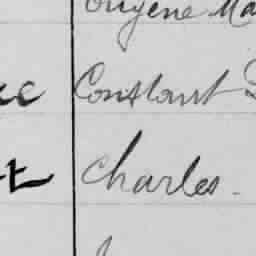 Eugène Ma
Constant
Charles